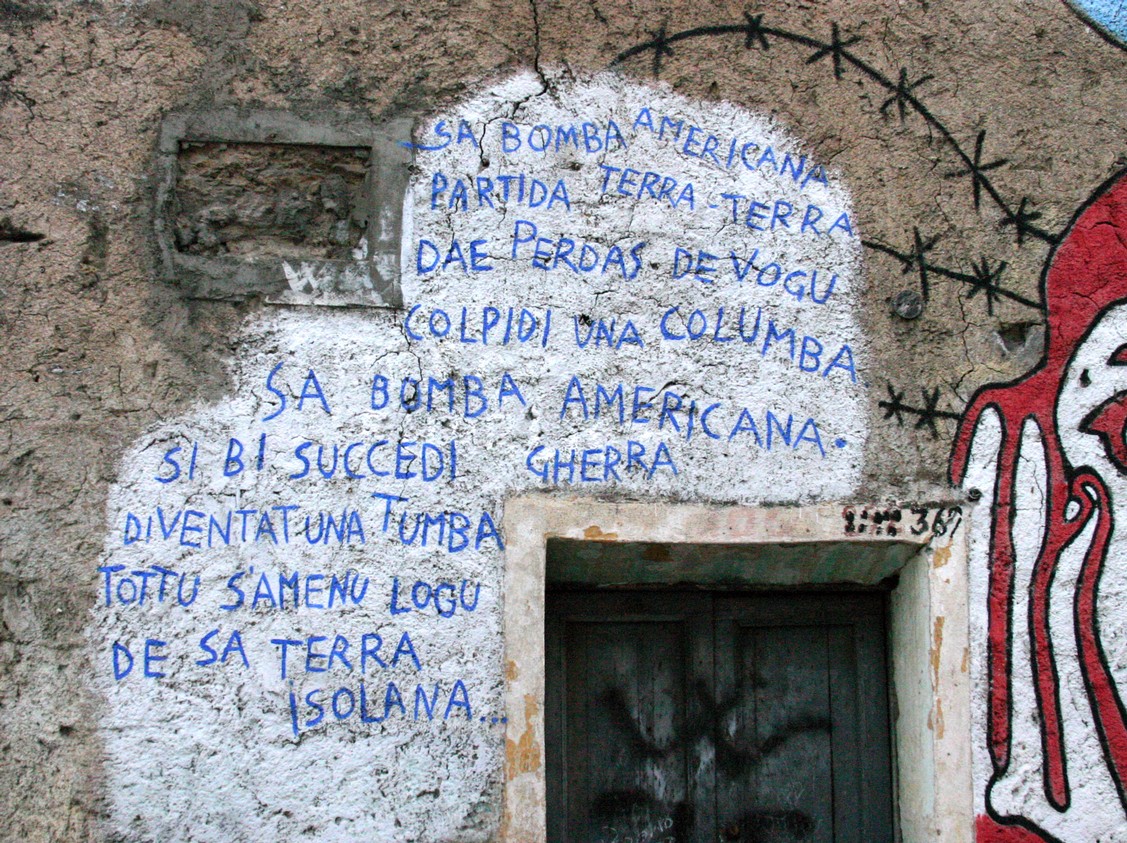 SA BOMBA AMERICANA
PARTIDA TERRA-TERRA
DAE PERDAS DE VOGU
COLPIDI UNA COLUMBA
SA BOMBA AMERICANA.
SI BI SUCCEDI GHERRA
DIVENTAT UNA TUMBA
TOTTU S'AMENU LOGU
DE SA TERRA
ISOLANA...